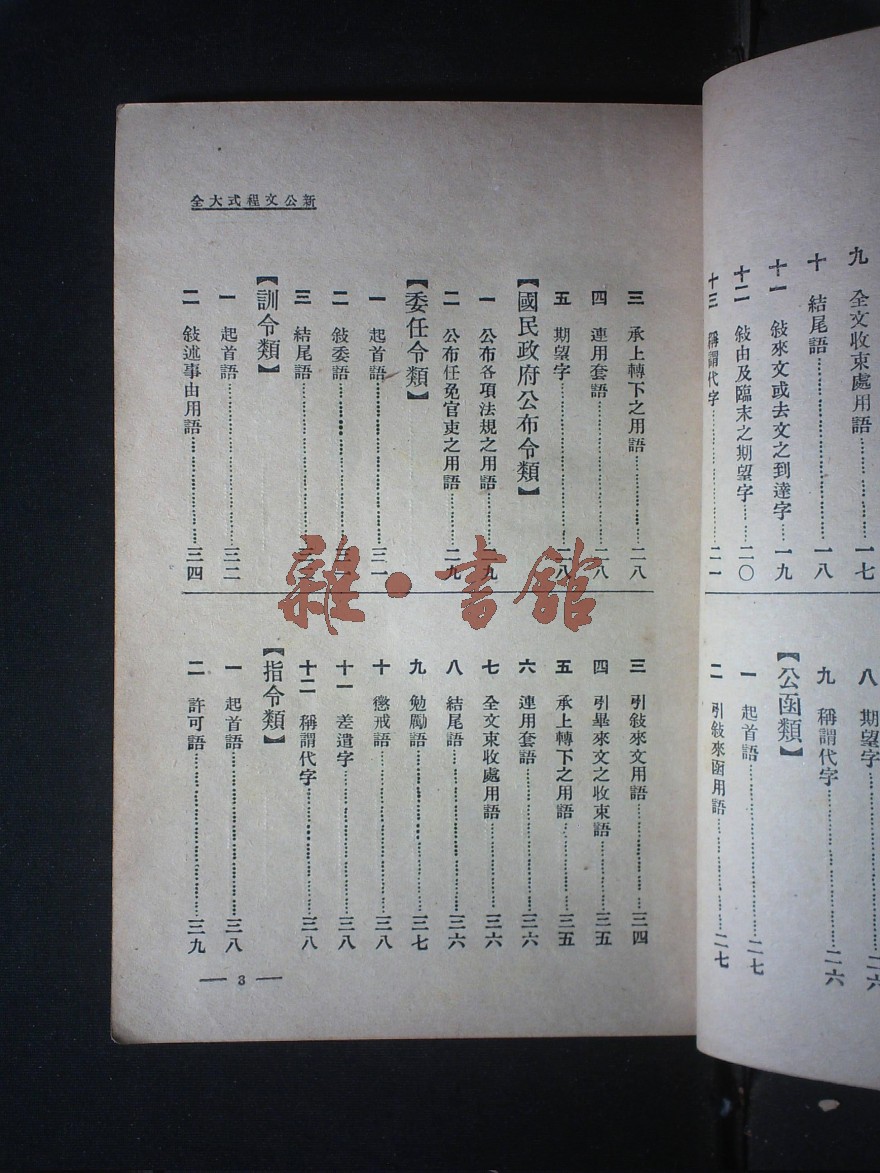 九 全文收束處用語……一七
十 結尾語……一八
十一 敍來文或去文之到達字……一九
十二 敍由及臨末之期望字……二〇
十三 稱謂代字……二一
八 期望字……二六
九 稱謂代字……二六
【公函類】
一 起首語……二七
二 引敍來函用語……二七
新公文程式大全
三 承上轉下之用語……二八
四 連用套語……二八
五 期望字……二八
【國民政府公布令類】
一 公布各項法規之用語……二九
二 公布任免官吏之用語……二九
【委任令類】
一 起首語……三一
二 敍委語……三一
三 結尾語……
【訓令類】
一 起首語……三二
二 敍述事由用語……三四
三 引敍來文用語……三四
四 引畢來文之收束語……三五
五 承上轉下之用語……三五
六 連用套語……三六
七 全文束收處用語……三六
八 結尾語……三六
九 勉勵語……三七
十 懲戒語……三八
十一 差遣字……三八
十二 稱謂代字……三八
【指令類】
一 起首語……三八
二 許可語……三九
— 3 —
雜·書館